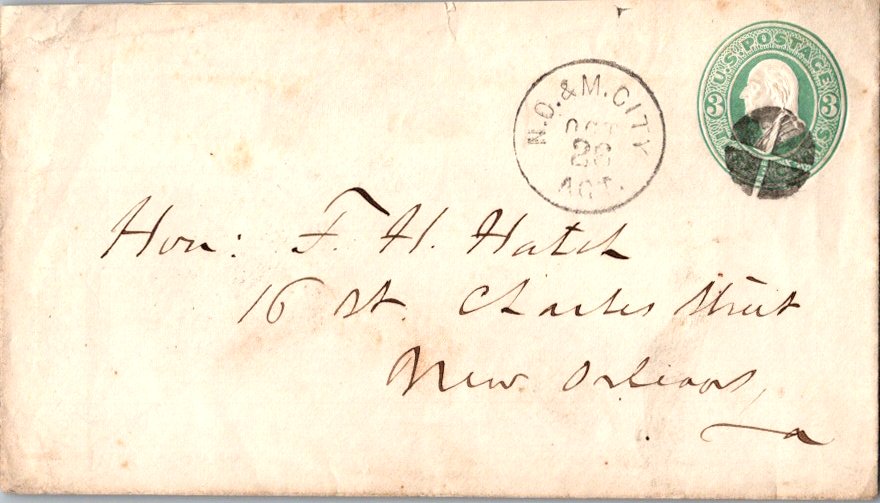 U.S. POSTAGE
3 3
N.O. & M. CITY
OCT
28
AGT.
Hon: F. H. Hatch
16 St. Charles Street
New Orleans,
La